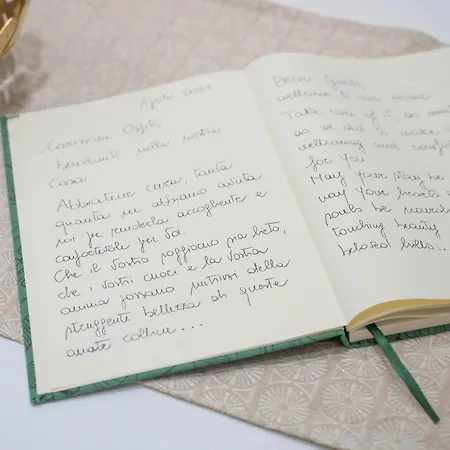 Carissimi Ospiti,
benvenuti nella nostra
Casa
Abbiatene cura, tanta
quanta ne abbiamo avuta
noi per renderla accogliente e
confortevole per Voi.
Che il Vostro soggiorno sia lieto,
che i Vostri cuori e la Vostra
anima possano nutrirsi della
struggente bellezza di queste
amate colline...
Dear Guests,
welcome to our home
Take care of it, as much
as we did to make
welcoming and
for you
May your stay be
may your hearts
souls be
touching beauty
beloved hills...